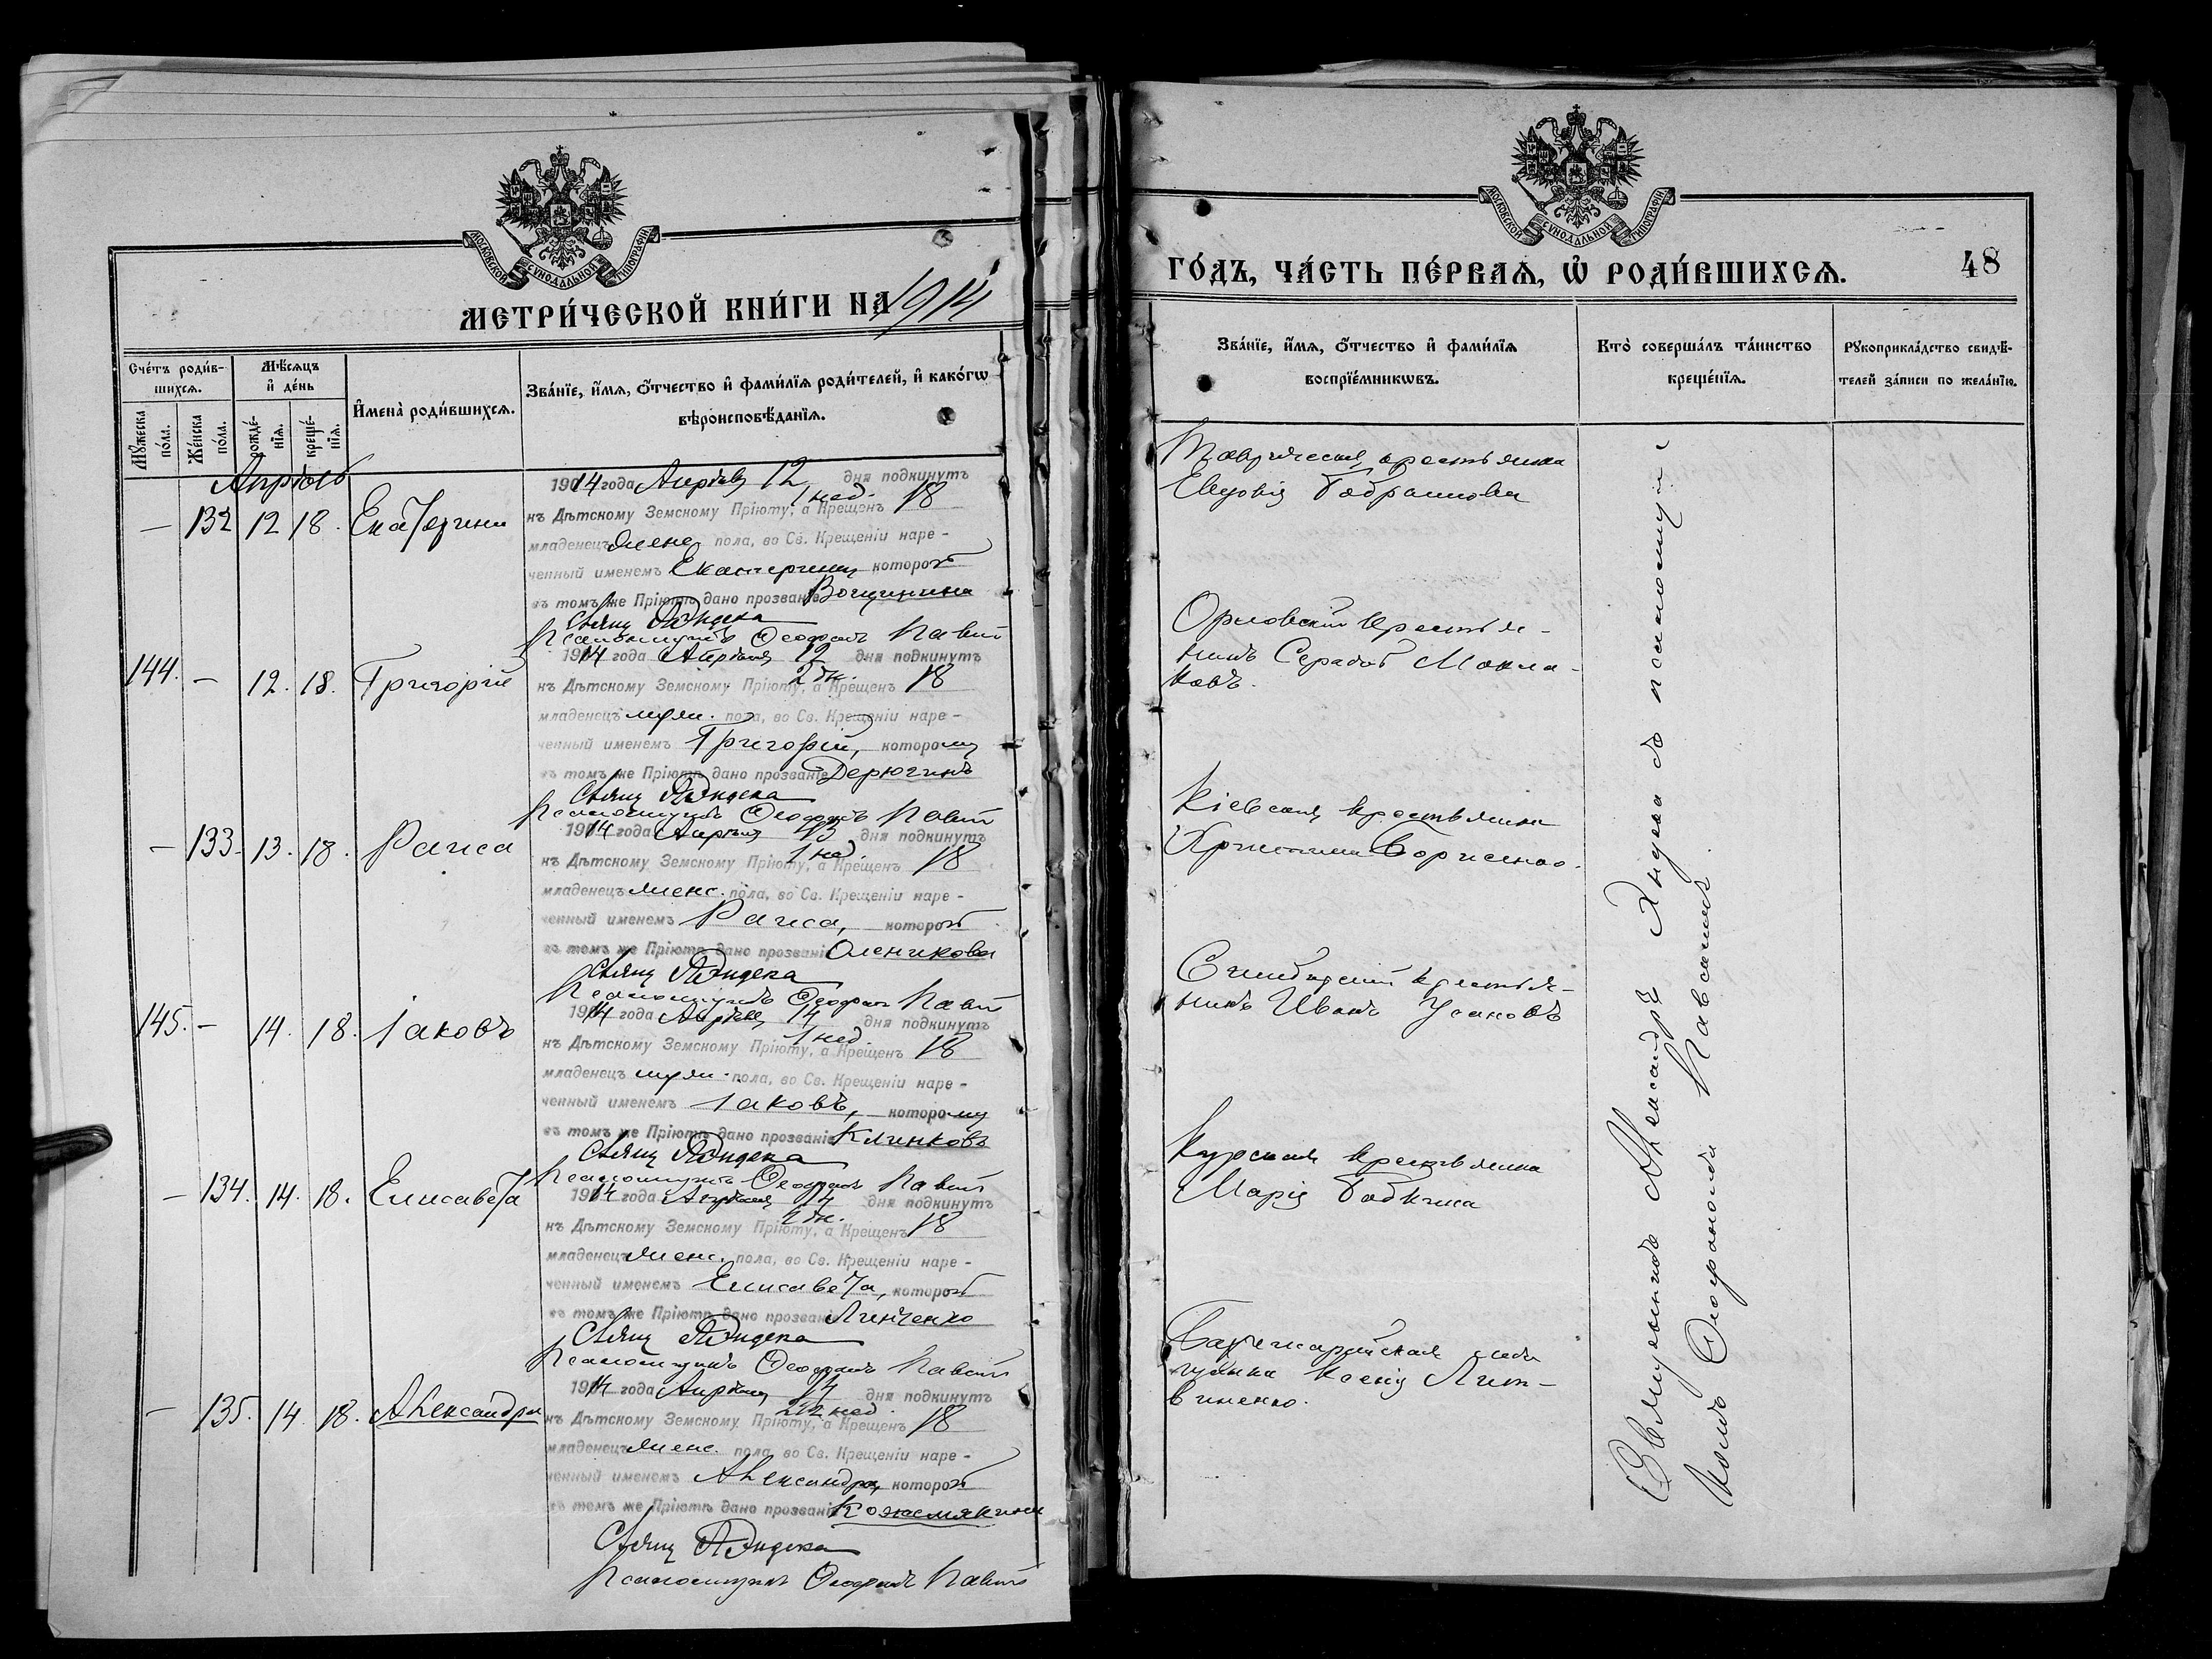 МОСКОВСКОЙ СѴНОДАЛЬНОЙ ТИПОГРАФІИ
МЕТРИ́ЧЕСКОЙ КНИ́ГИ НА 1914
Сче́тъ роди́в-
шихсѧ.
Мѣ́сѧцъ
и҆ де́нь
Мꙋ́жеска
по́ла.
Же́нска
по́ла.
рожде́-
нїѧ.
креще́-
нїѧ.
И҆мена̀ роди́вшихсѧ.
Зва́нїе, и҆́мѧ, ѻ҆́тчество и҆ фами́лїѧ роди́телей, и҆ како́гѡ
вѣроисповѣ́данїѧ.
Апрѣль
— 132 12 18. Екатерина
1914 года Апрѣля 12 дня подкинутъ
1 нед.
къ Дѣтскому Земскому Пріюту, а Крещенъ 18
младенецъ женс. пола, во Св. Крещеніи наре-
ченный именемъ Екатерина, которой
въ томъ же Пріютѣ дано прозваніе
Свящ. А Яндека
Псаломщикъ Ѳеофанъ
144. — 12. 18. Григорій
1914 года Апрѣля 12 дня подкинутъ
2 дн.
къ Дѣтскому Земскому Пріюту, а Крещенъ 18
младенецъ муж. пола, во Св. Крещеніи наре-
ченный именемъ Григорій, которому
въ томъ же Пріютѣ дано прозваніе Дерюгинъ
Свящ. А Яндека
Псаломщикъ Ѳеофанъ
— 133. 13. 18. Раиса
1914 года Апрѣля 13 дня подкинутъ
1 нед.
къ Дѣтскому Земскому Пріюту, а Крещенъ 18
младенецъ женс. пола, во Св. Крещеніи наре-
ченный именемъ Раиса, которой
въ томъ же Пріютѣ дано прозваніе Оленикова
Свящ. А Яндека
Псаломщикъ Ѳеофанъ
145. — 14. 18. Іаковъ
1914 года Апрѣля 14 дня подкинутъ
1 нед.
къ Дѣтскому Земскому Пріюту, а Крещенъ 18
младенецъ муж. пола, во Св. Крещеніи наре-
ченный именемъ Іаковъ, которому
въ томъ же Пріютѣ дано прозваніе Клинковъ
Свящ. А Яндека
Псаломщикъ Ѳеофанъ
— 134. 14. 18. Елисавета
1914 года Апрѣля 14 дня подкинутъ
2 дн.
къ Дѣтскому Земскому Пріюту, а Крещенъ 18
младенецъ женс. пола, во Св. Крещеніи наре-
ченный именемъ Елисавета, которой
въ томъ же Пріютѣ дано прозваніе Линченко
Свящ. А Яндека
Псаломщикъ Ѳеофанъ
— 135. 14. 18. Александра
1914 года Апрѣля 14 дня подкинутъ
къ Дѣтскому Земскому Пріюту, а Крещенъ 18
младенецъ женс. пола, во Св. Крещеніи наре-
ченный именемъ Александра, которой
въ томъ же Пріютѣ дано прозваніе Кожемякина
Свящ. А Яндека
Псаломщикъ Ѳеофанъ
МОСКОВСКОЙ СѴНОДАЛЬНОЙ ТИПОГРАФІИ
ГО́ДЪ, ЧА́СТЬ ПЕ́РВАѦ, Ѽ РОДИ́ВШИХСѦ. 48
Зва́нїе, и҆́мѧ, ѻ҆́тчество и҆ фами́лїѧ
воспрїе́мникѡвъ.
Кто̀ соверша́лъ та́инство
креще́нїѧ.
Рꙋкоприкла́дство свидѣ́-
телей за́писи по жела́нїю.
Таврическая крестьянка
Евдокія
Орловскій крестья-
нинъ Мокла-
ковъ.
Кіевская крестьянка
Христина Борисенко.
крестья-
нинъ Иванъ Усановъ
Курская крестьянка
Марія Бабкина
Ксенія Лит-
виненко.
Священникъ Александръ Яндека съ псаломщи-
комъ Ѳеофаномъ